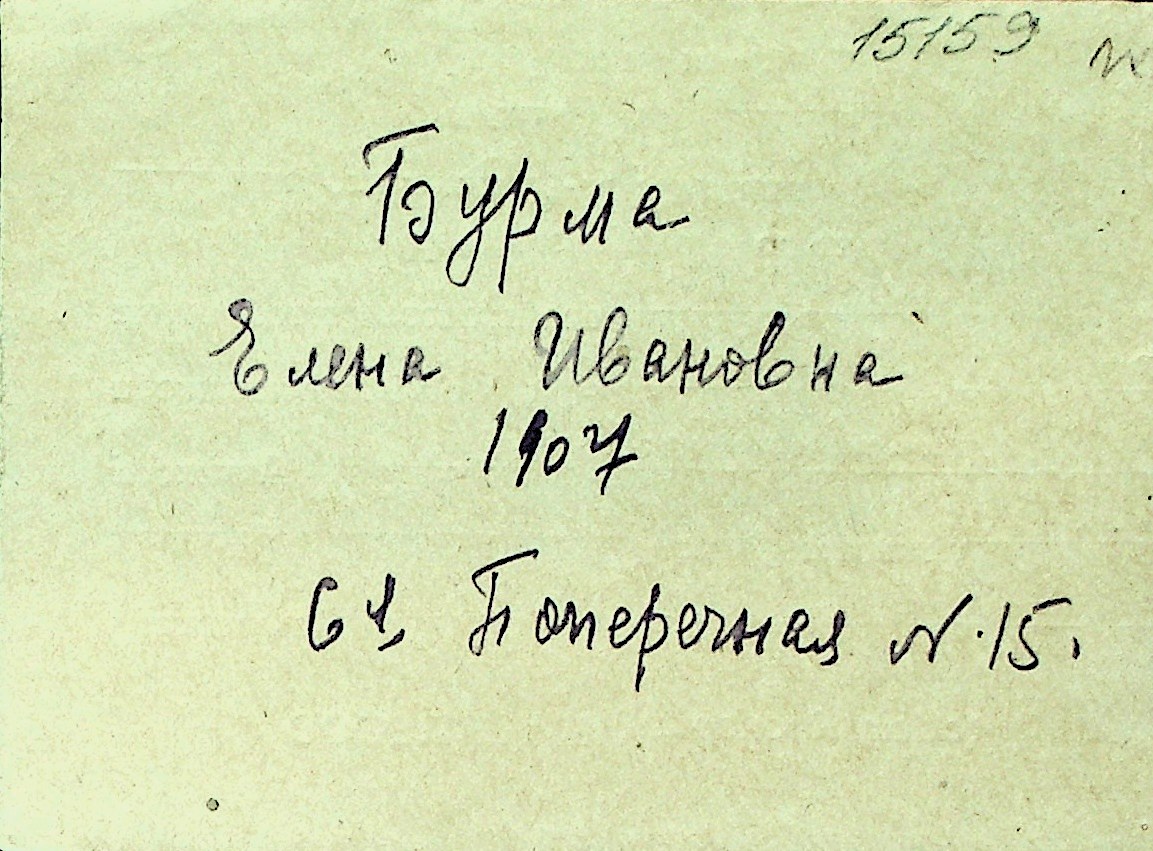 15159
Бурма
Елена Ивановна
1907
61 Поперечная N. 15.